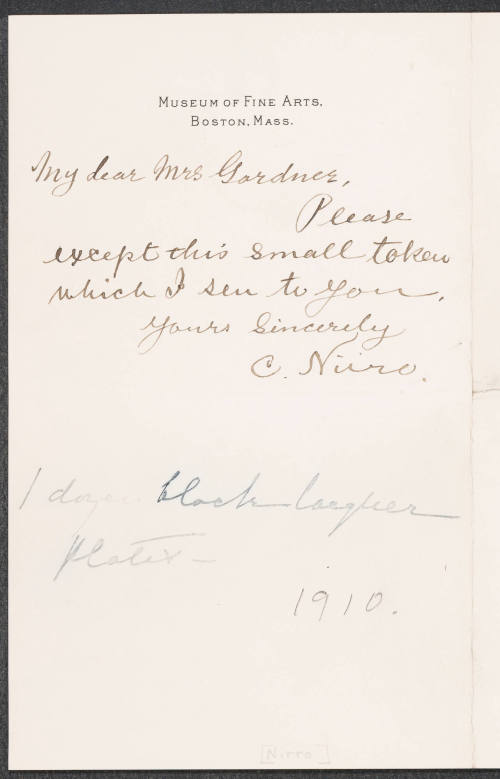 MUSEUM OF FINE ARTS,
BOSTON, MASS.
My dear Mrs Gardner,
Please
except this small token
which I sen to you.
Yours Sincerely
C. Nirro.
1 dozen black lacquer
plates –
1910.
[Nirro]